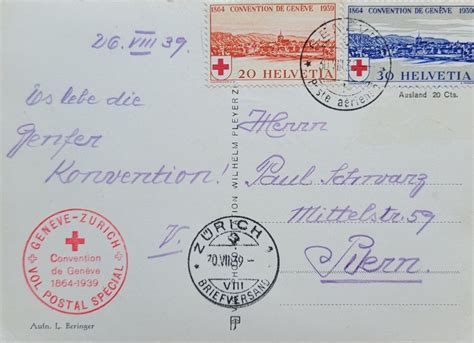 26. VIII 39.
Es lebe die
Genfer
Konvention!
V.
1864 CONVENTION DE GENÈVE 1939
20 HELVETIA
1864 CONVENTION DE GENÈVE 1939
30 HELVETIA
GENÈVE
Pste aérienne
Ausland 20 Cts.
Herrn
Paul Schwarz
Mittelstr. 59
Bern.
GENÈVE-ZURICH
Convention
de Genève
1864-1939
VOL POSTAL SPÉCIAL
ZÜRICH 1
VIII
BRIEFVERSAND
WILHELM PLEYER
Aufn. L. Beringer